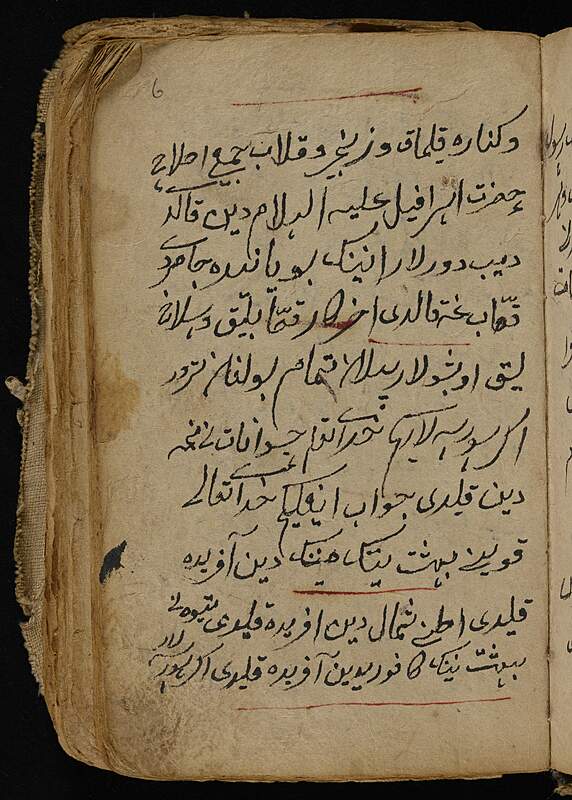 6
وکناره قیلماق و زنجیر و قلاب جمیع
حضرت اسرافیل علیه السلام دین قالدی
دیب دورلار انینک بو یاننده
قصاب غه قالدی اخر کار قصابلیق و سلاخ
لیق اوشبولار بیلان تمام بولغان تورور
اکر سورسه لارکیم خدایتعالی حیوانات نی نمه
دین قیلدی جواب ایغیل کیم خدایتعالی
قوی نی بهشت نینک دین آفریده
قیلدی اطنی شمال دین افریده قیلدی تیوه نی
بهشت نینک کافوریدین آفریده قیلدی اکر سورسه
لار